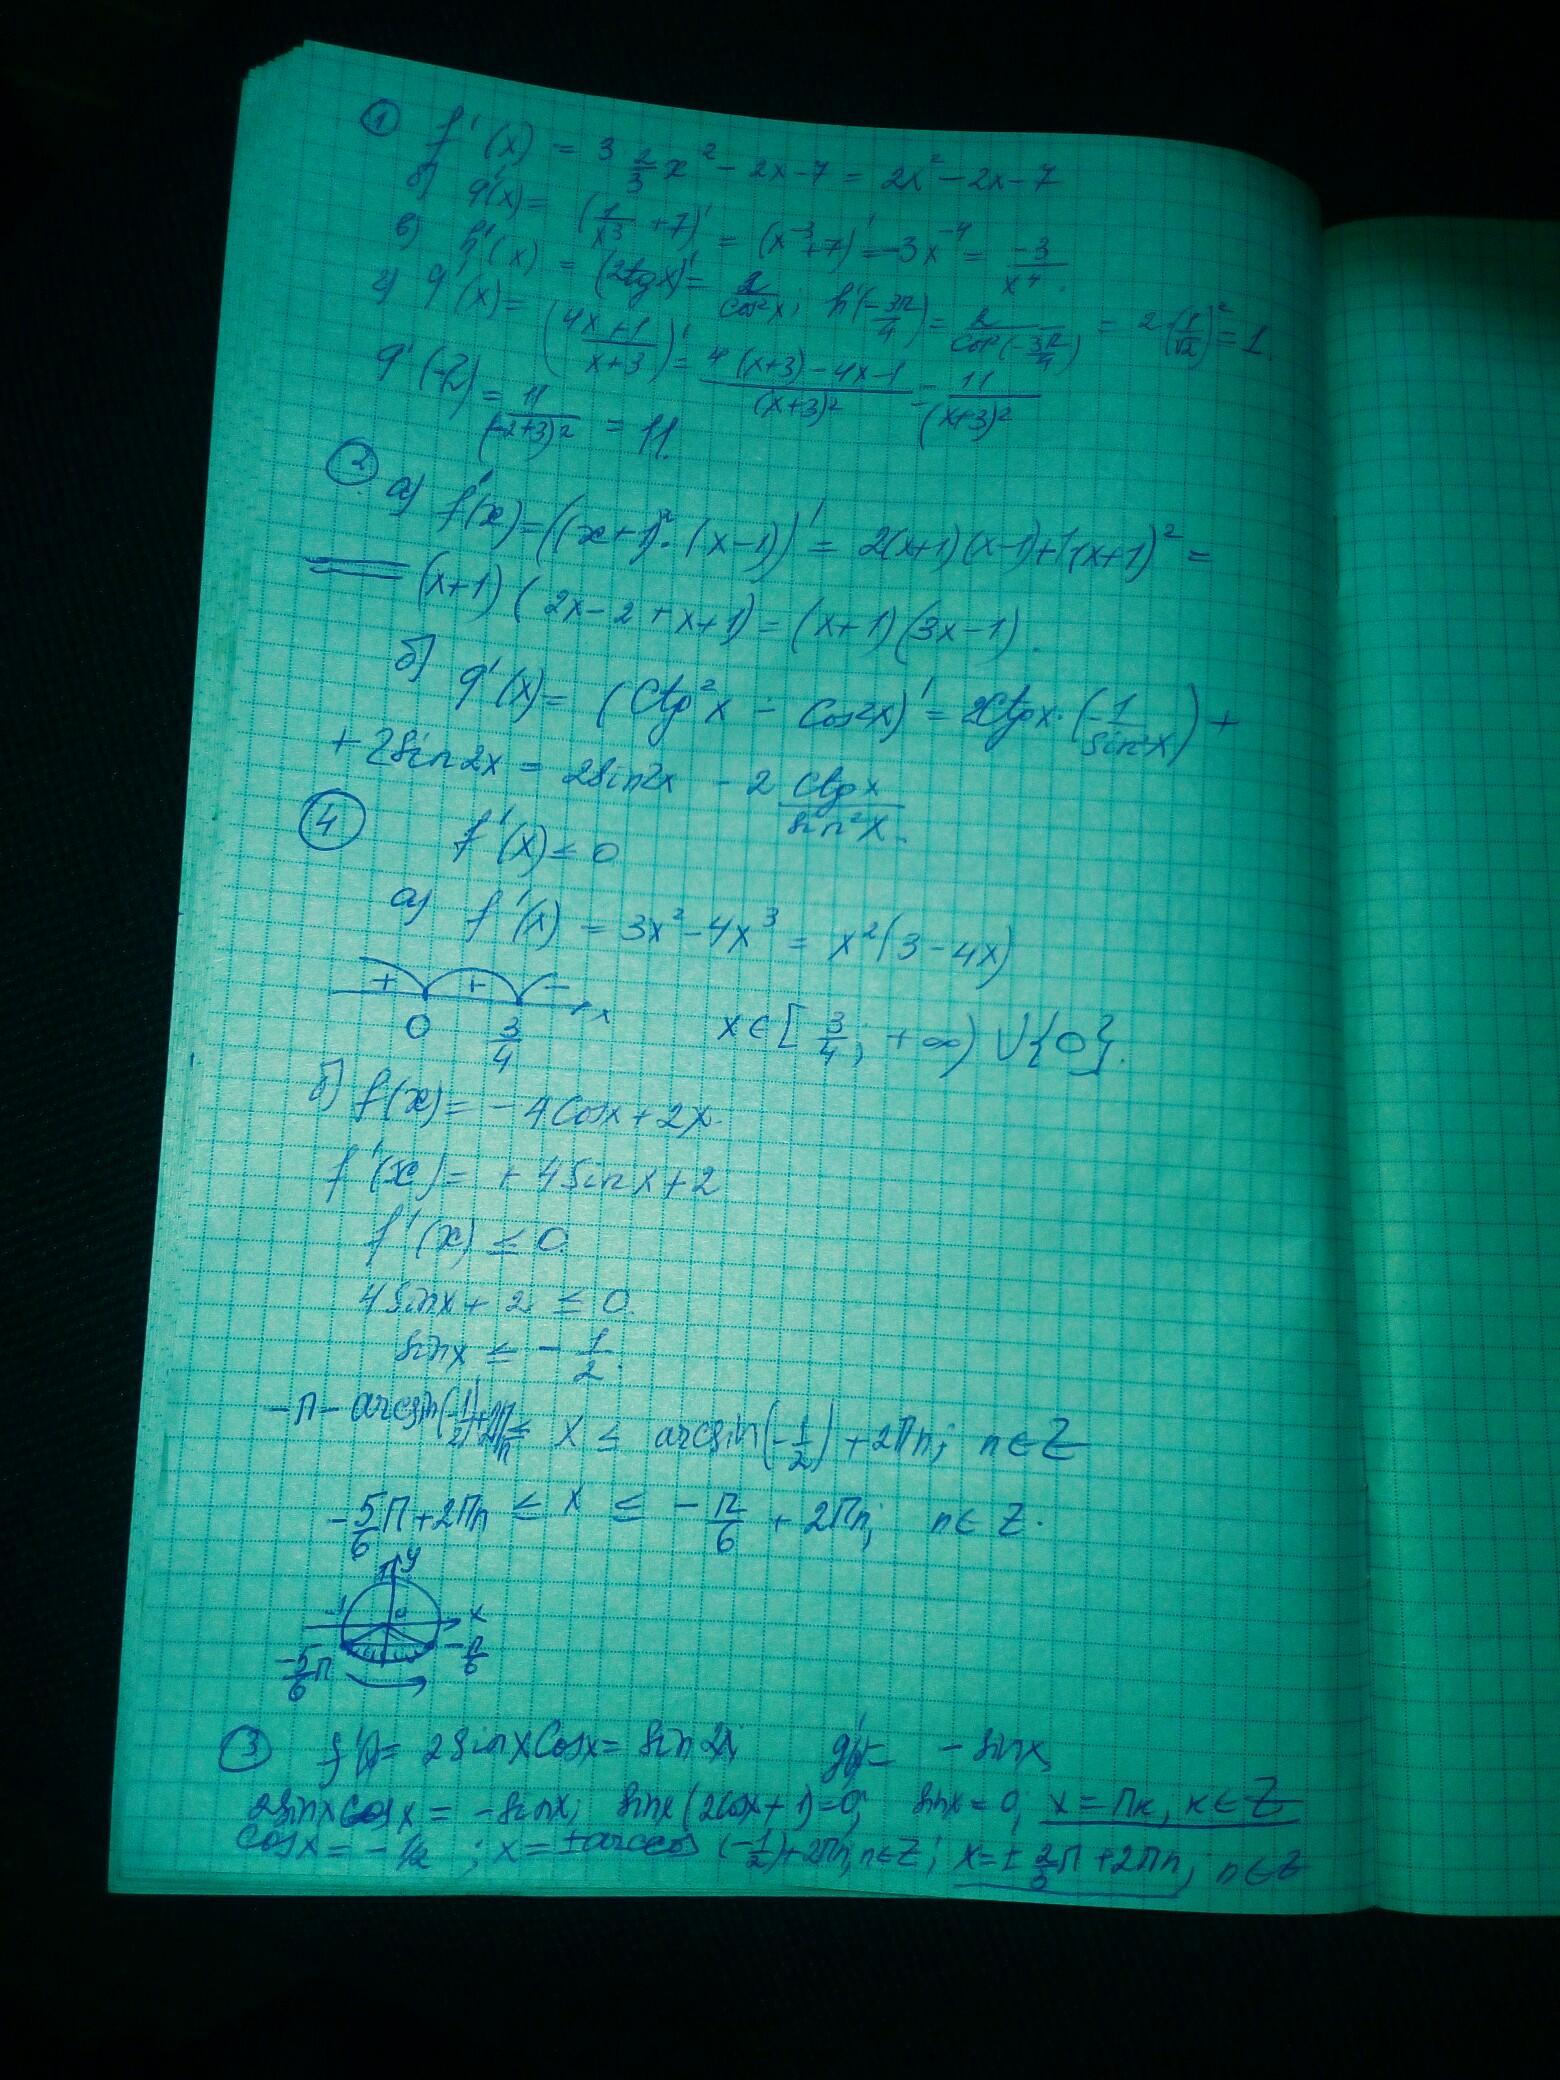 ① f'(x) = 3 2/3 x² - 2x - 7 = 2x² - 2x - 7
б) g'(x) = (1/x³ + 7)' = (x⁻³ + 7)' = -3x⁻⁴ = -3/x⁴.
в) h'(x) = (2tgx)' = 2/cos²x; h'(-3π/4) = 2/cos²(-3π/4) = 2·(1/√2)² = 1.
г) g'(x) = ((4x+1)/(x+3))' = (4(x+3)-4x-1)/(x+3)² = 11/(x+3)²
g'(-2) = 11/(-2+3)² = 11.
② а) f'(x) = ((x+1)²·(x-1))' = 2(x+1)(x-1)+1(x+1)² =
= (x+1)(2x-2+x+1) = (x+1)(3x-1).
б) g'(x) = (Ctg²x - Cos2x)' = 2Ctgx·(-1/sin²x) +
+ 2sin2x = 2sin2x - 2 Ctgx/sin²x.
④ f'(x) ≤ 0
а) f'(x) = 3x² - 4x³ = x²(3-4x)
+ + - x
0 3/4 x ∈ [3/4; +∞) ∪ {0}.
б) f(x) = -4Cosx + 2x.
f'(x) = +4Sinx + 2
f'(x) ≤ 0.
4Sinx + 2 ≤ 0.
sinx ≤ -1/2.
-π - arcsin(-1/2)+2πn ≤ x ≤ arcsin(-1/2) + 2πn; n∈Z
-5/6π + 2πn ≤ x ≤ -π/6 + 2πn; n∈Z.
y
-1 0 x
-5/6π -π/6
③ f'(x) = 2sinxCosx = sin2x; g'(x) = -sinx
2sinxcosx = -sinx; sinx(2cosx+1)=0; sinx=0; x=πк, к∈Z
cosx = -1/2; x = ±arccos(-1/2)+2πn; n∈Z; x=±2/3π+2πn; n∈Z